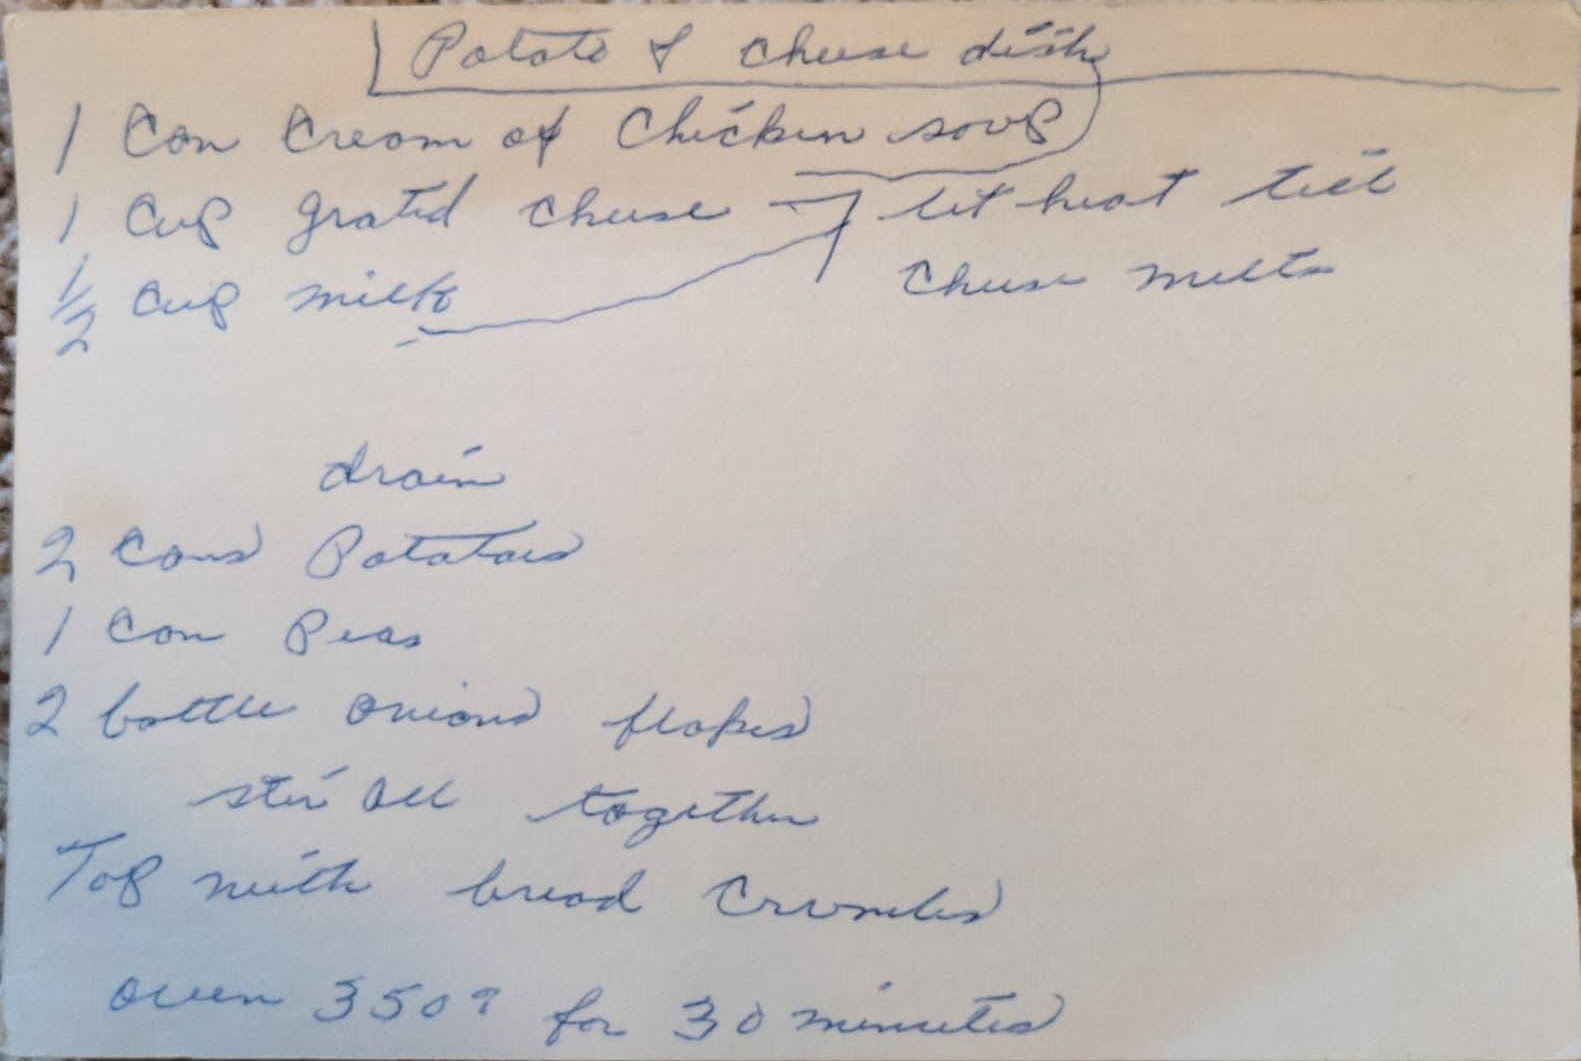 Potato & Cheese dish
1 Can Cream of Chicken soup
1 Cup grated cheese let heat till
1/2 Cup milk Cheese melts
drain
2 Cans Potatoes
1 Can Peas
2 bottle onions flakes
stir all together
Top with bread Crumbs
oven 350° for 30 minutes